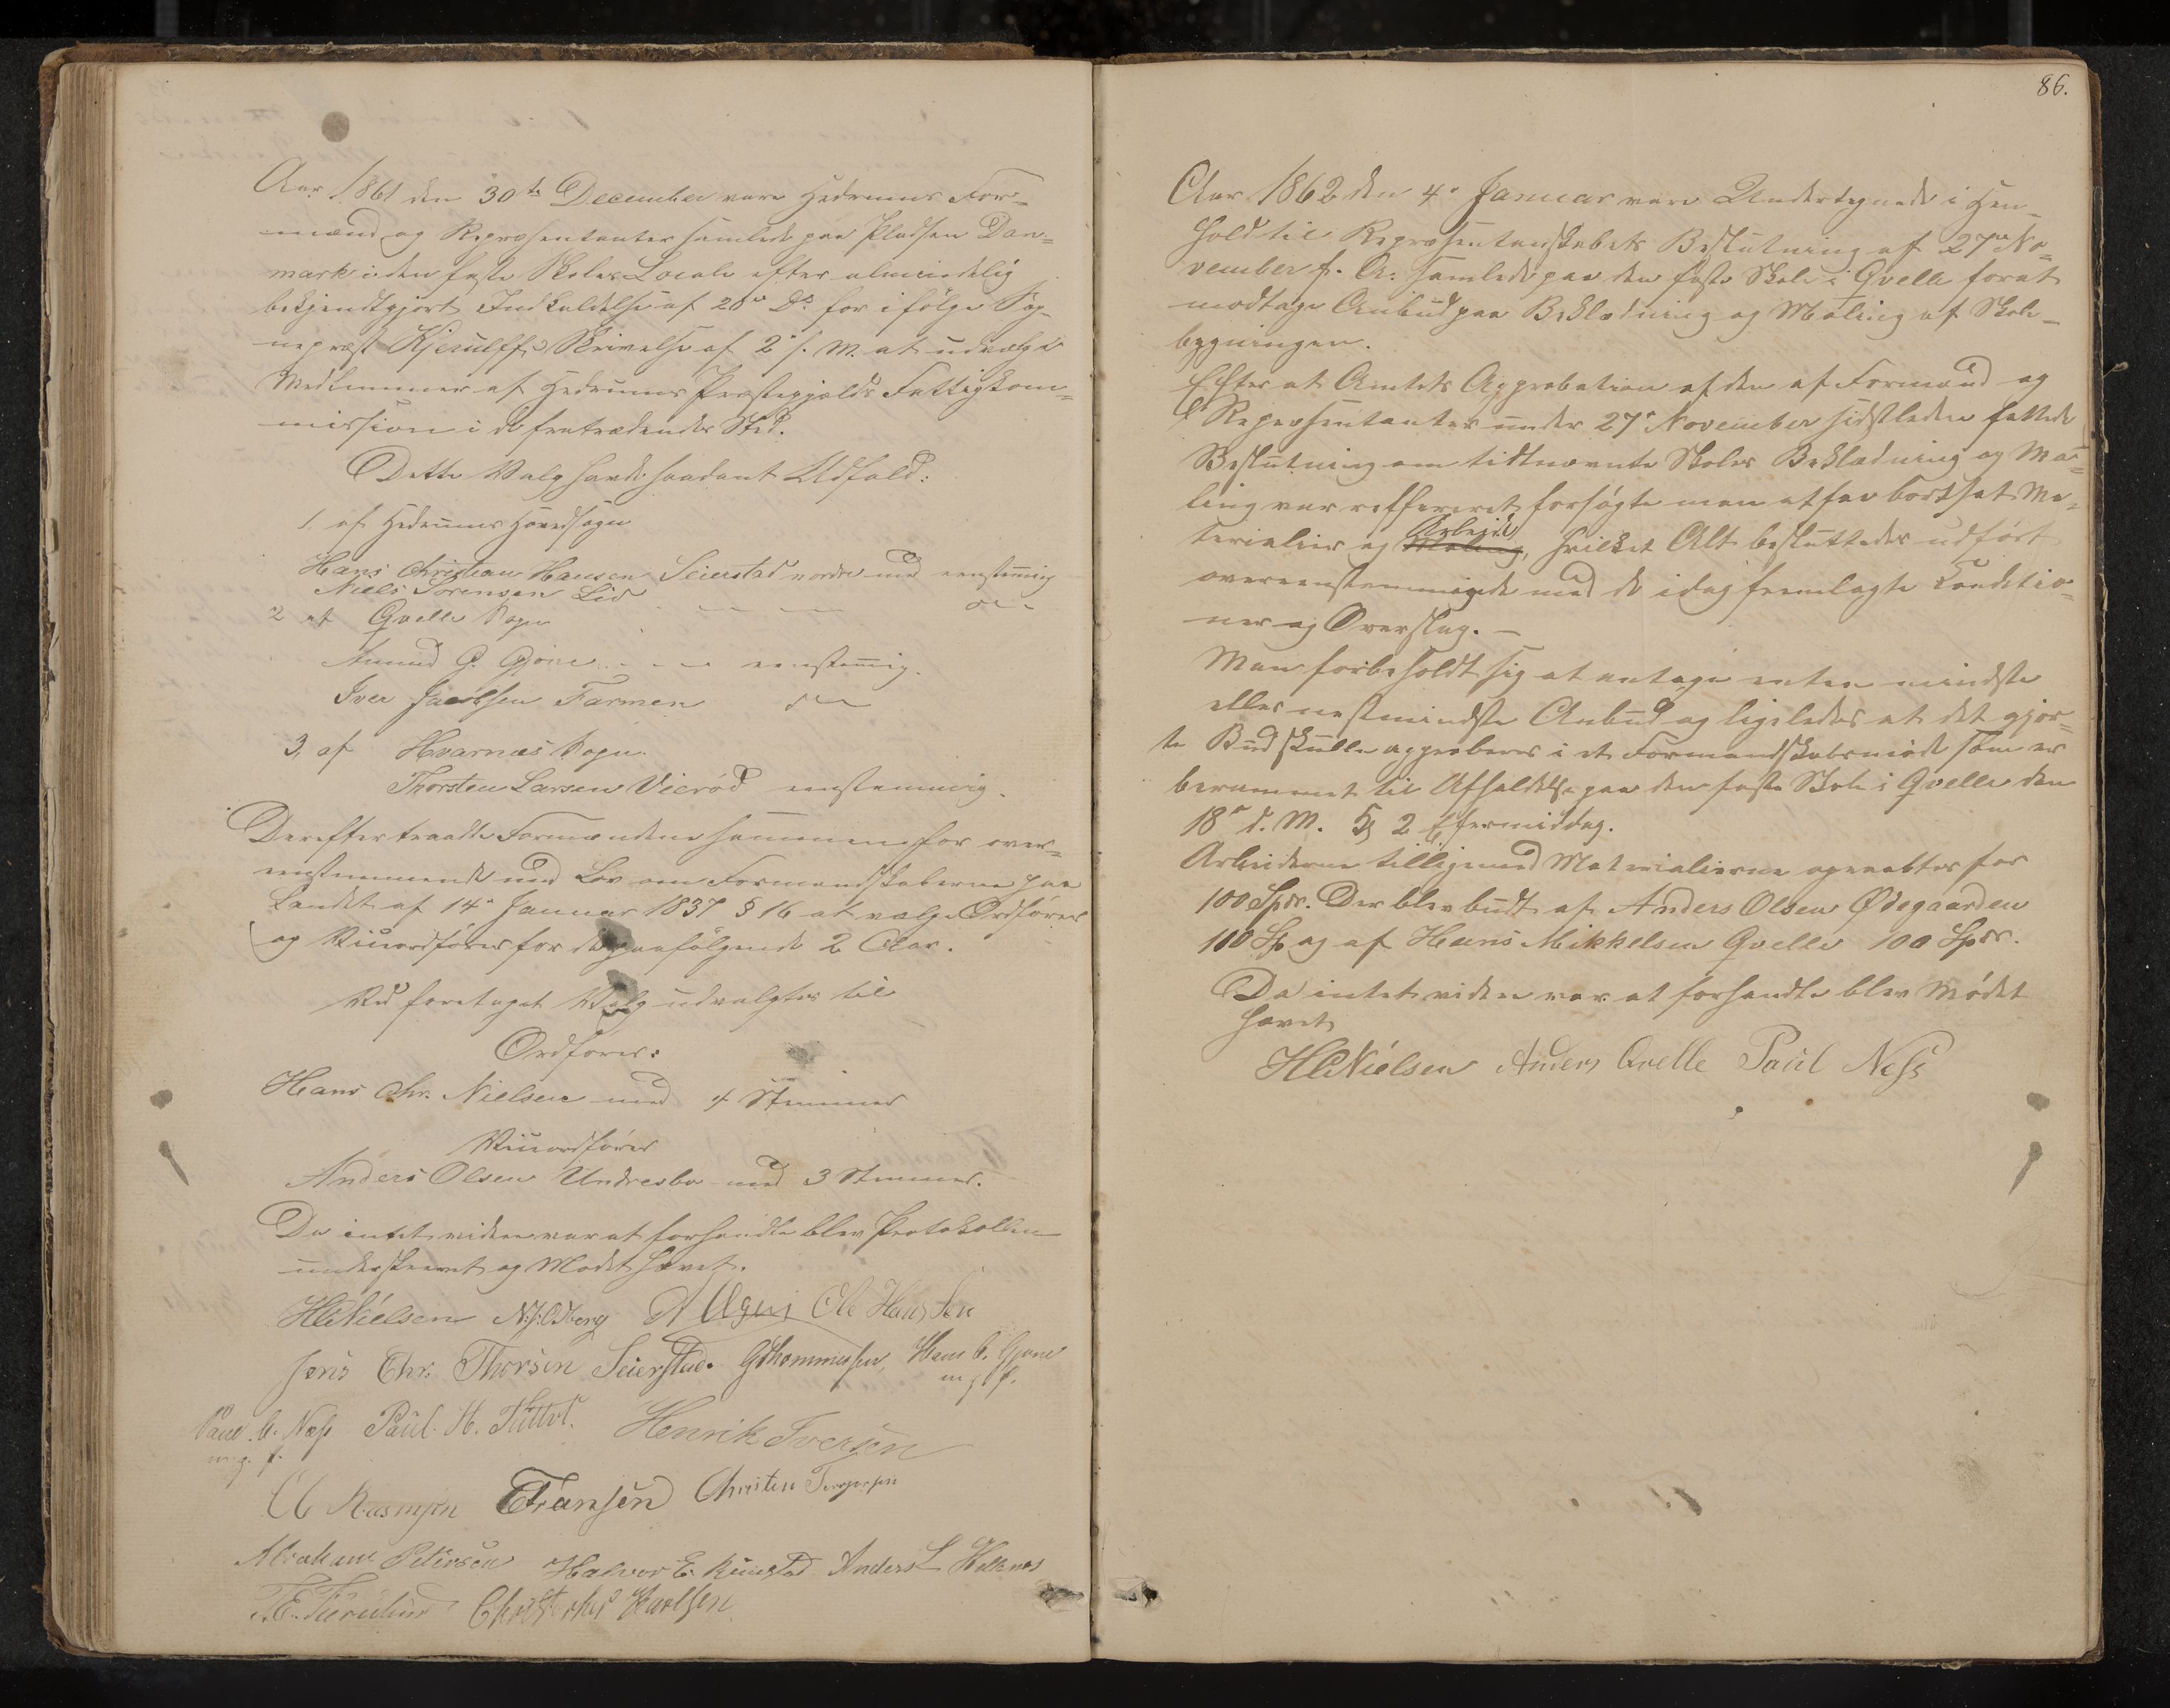 Aar 1861 den 30te December vare Hedrums For-
mænd og Repræsentanter samlede paa Pladsen Dan-
mark i den faste Skoles Locale efter almindelig
bekjendtgjort Indkaldelse af 20de Ds. for ifølge Sog-
nepræst Kjerulffs Skrivelse af 2den s. M. at udvælge
Medlemmer af Hedrums Præstegjælds Fattigkom-
mission i de fratrædendes Sted.
Dette Valg havde saadant Udfald:
1. af Hedrums Hovedsogn
Hans Christian Hansen Seierstad nordre med eenstemig
Niels Sørensen Lid
2 af Qvelle Sogn
Amund G. Gjøne - - - eenstemig.
Iver Jacobsen Farmen
3, af Hvarnæs Sogn.
Thorsten Larsen Vierød eenstemmig.
Derefter traadte Formændene sammen for over-
eenstemmende med Lov om Formandskaberne paa
Landet af 14de Januar 1837 § 16 at vælge Ordfører
og Viceordfører for de paafølgende 2 Aar.
Ved foretaget Valg udvalgtes til
Ordfører:
Hans Chr. Nielsen med 4 Stemmer
Viceordfører
Anders Olsen Undresbo med 3 Stemmer.
Da intet videre var at forhandle blev Protokollen
underskrevet og Mødet hævet.
HCNielsen Ole Hansen
Jens Chr. Thorsen Seierstad. GThommesen, Hans C. Gjone
m. p. f.
Paul C. Næss Paul H. Henrik Iversen
m. p. f.
Ol Rasmusen EFransen Christen Torgersen
Abraham Petersen Halvor E. Anders L
Christopher Karlsen
86.
Aar 1862 den 4de Januar vare Undertegnede i Hen-
hold til Repræsentanskabets Beslutning af 27de No-
vember f. A. samlede paa den faste Skole i Qvelle forat
modtage Anbud paa Beklædning og Maling af Skole-
bygningen.
Efter at Amtets Approbation af den af Formænd og
Repræsentanter under 27de November sidstleden fattede
Beslutning om tidtnævnte Skoles Beklædning og Ma-
ling var refffereret forsøgte man at faa bortsat Ma-
Arbeide
terialier og Maling, hvilket Alt besluttedes udført
overeenstemmende med de idag fremlagte Conditio-
ner og Overslag. –
Man forbeholdt sig at antage enten mindste
eller næstmindste Anbud og ligeledes at det gjor-
te Bud skulle approberes i et Formandskabsmøde som er
berammet til Afholdelse paa den faste Skole i Qvelle den
18de d. M. Kl 2 Eftermiddag.
Arbeiderne tilligemed Materialierne opraabtes for
100 Spdr. Der blev budt af Anders Olsen Ødegaarden
110 Sp og af Hans Mikkelsen Qvelle 100 Spdr.
Da intet videre var at forhandle blev Mødet
hævet
HCNielsen Anders Qvelle Paul Næss